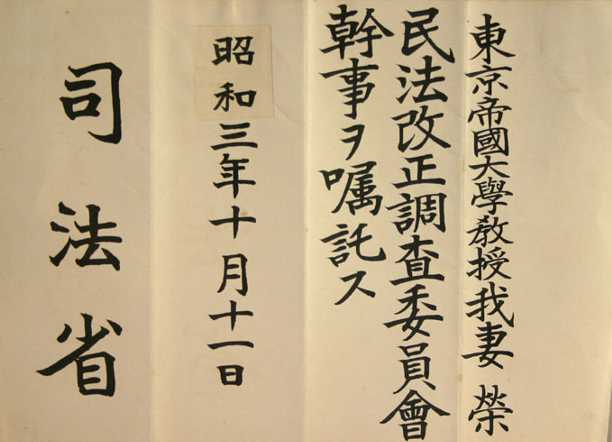 東京帝國大學教授我妻 榮
民法改正調査委員會
幹事ヲ嘱託ス
昭和三年十月十一日
司法省